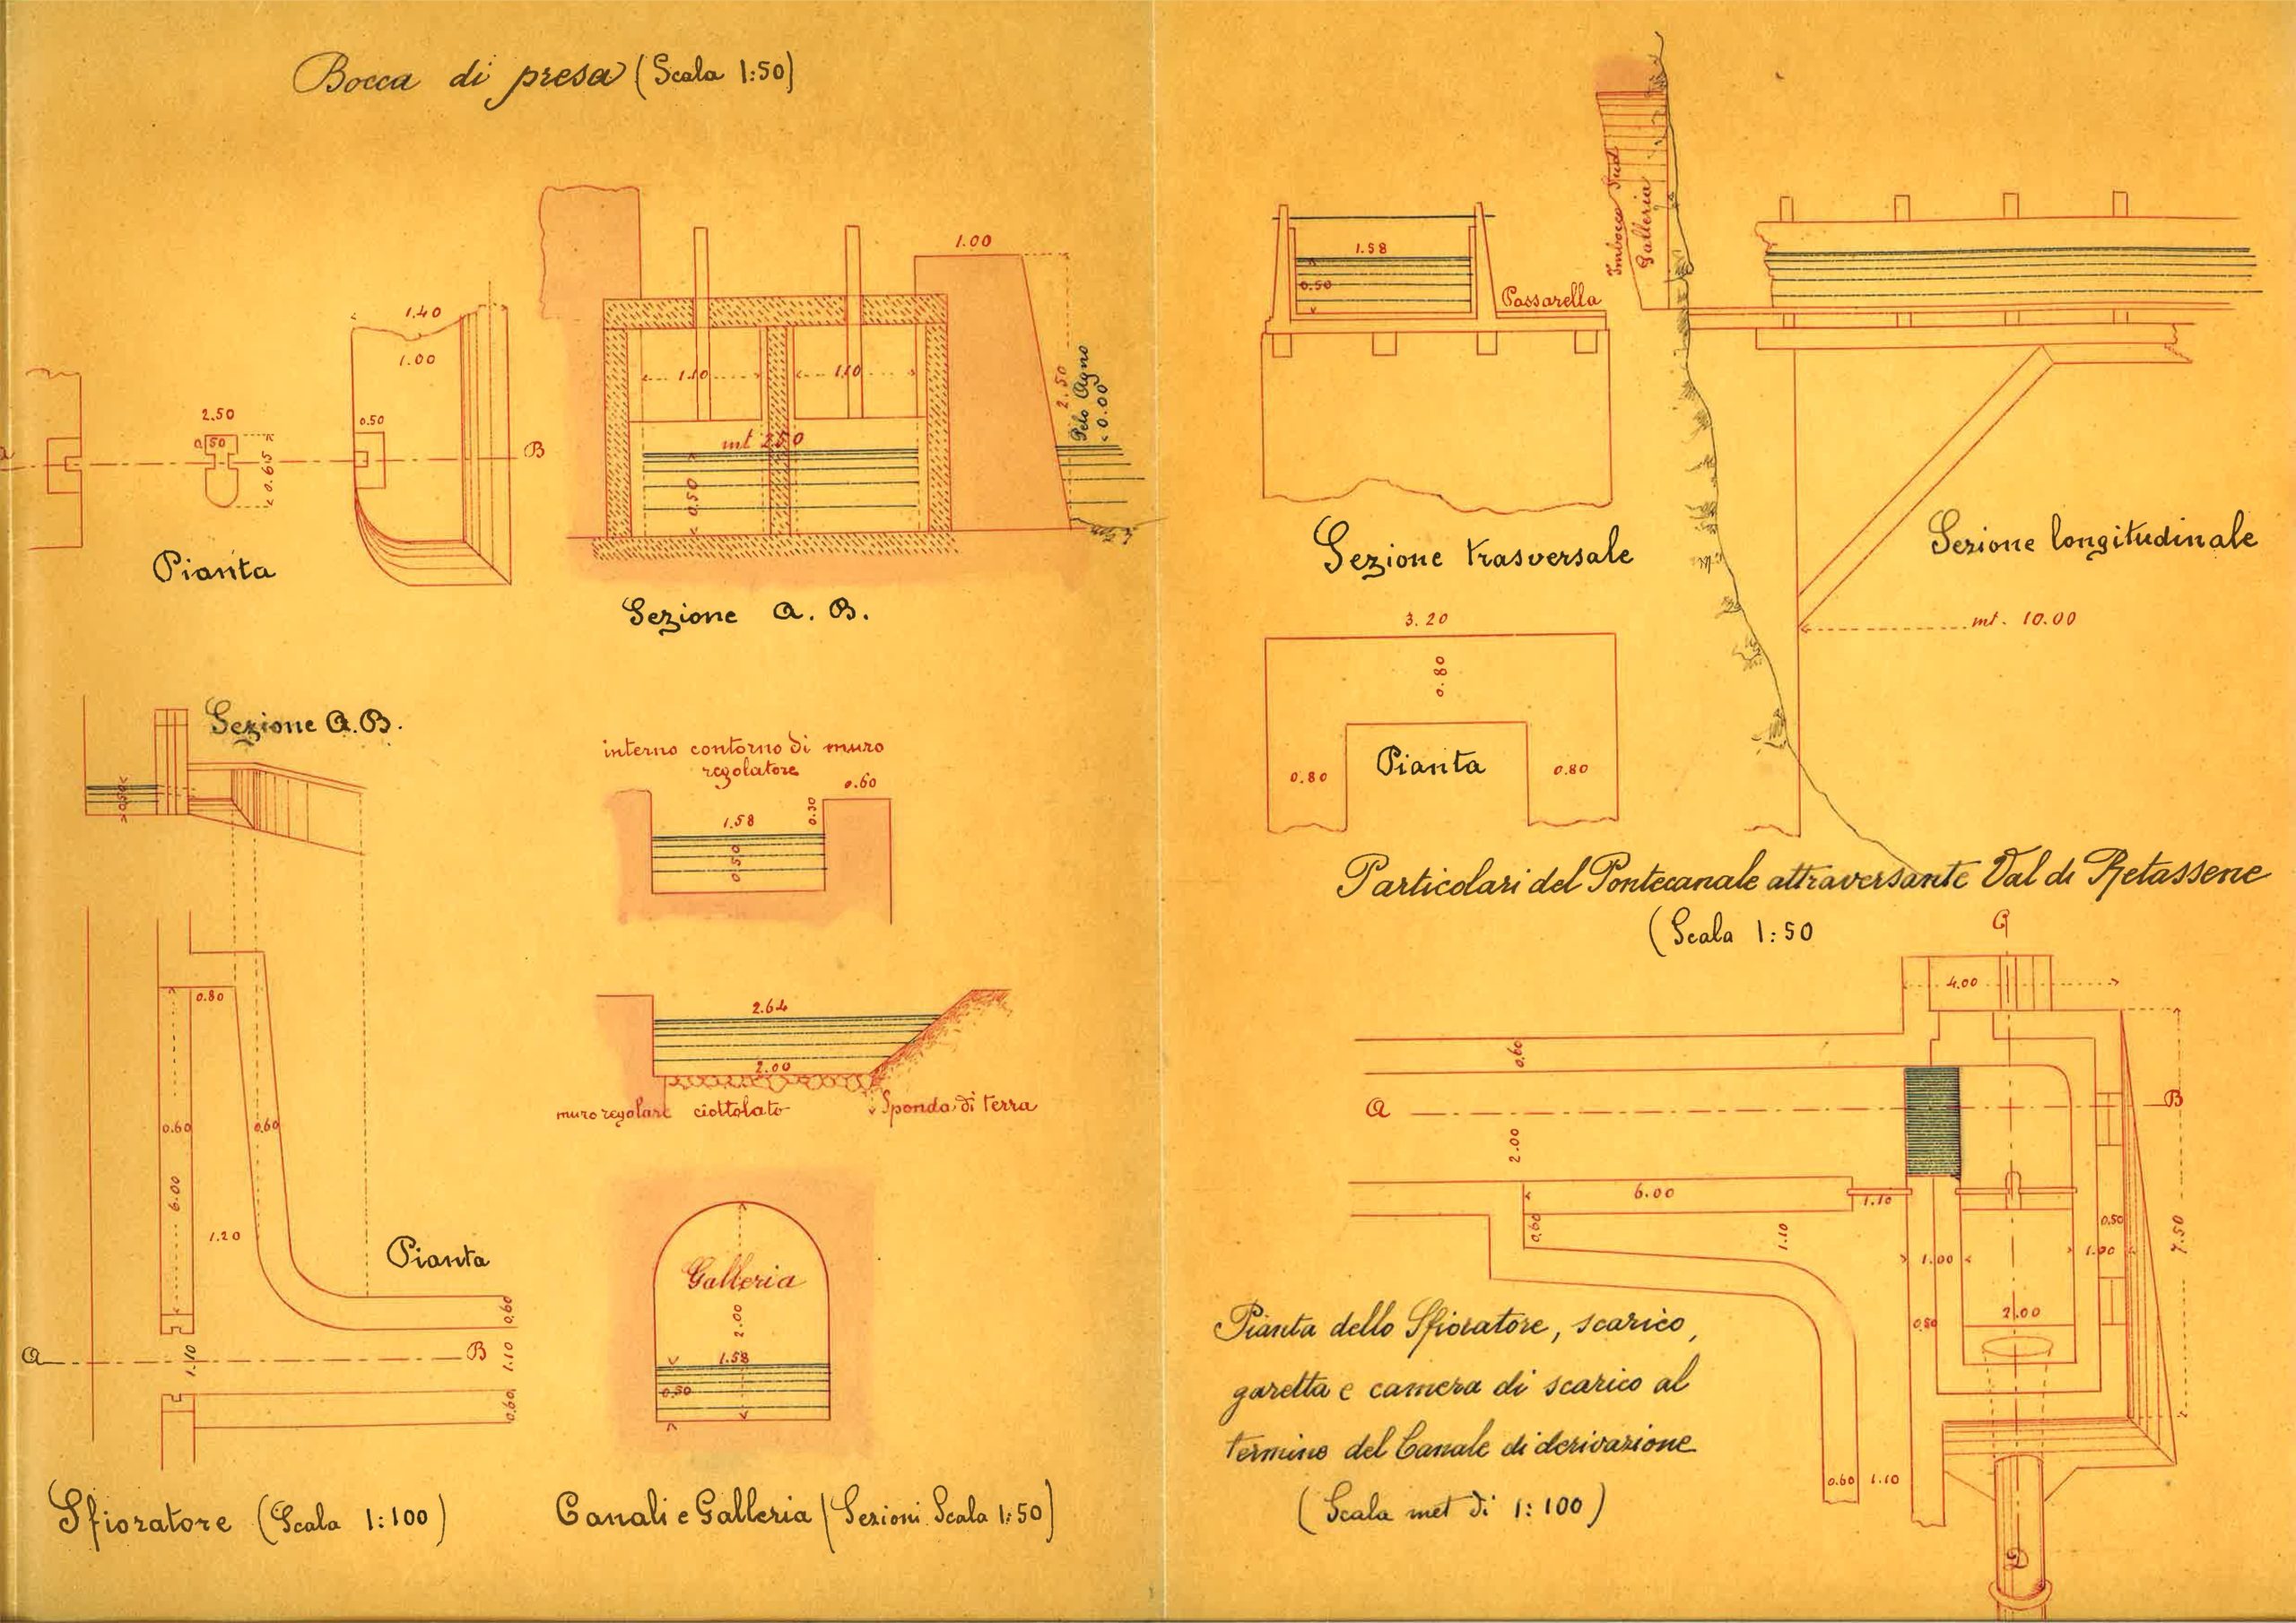 Bocca di presa (Scala 1:50)
1.40
1.00
2.50
0.50
0.65
0.50
B
Pianta
1.00
1.10
1.10
mt 2.50
0.50
2.50
Pelo Agno
0.00
Sezione A. B.
Sezione A.B.
0.50
0.80
0.60
0.60
6.00
1.20
Pianta
0.60
A
B
1.10
1.10
0.60
Sfioratore (Scala 1:100)
interno contorno di muro
regolatore
0.60
0.30
1.58
0.50
2.64
2.00
muro regolare ciottolato Sponda di terra
Galleria
2.00
1.58
0.50
Canali e Galleria (Sezioni Scala 1:50)
1.58
0.50
Passarella
Imbocco Sud
Galleria
Sezione trasversale
Sezione longitudinale
mt. 10.00
3.20
0.80
0.80
Pianta
0.80
Particolari del Pontecanale attraversante Val di Retassene
(Scala 1:50
4.00
0.60
A
B
2.00
6.00
1.10
0.60
1.10
0.50
1.00
1.00
7.50
2.00
0.50
0.60
1.10
Pianta dello Sfioratore, scarico,
garetta e camera di scarico al
termine del Canale di derivazione
(Scala met di 1:100)
D